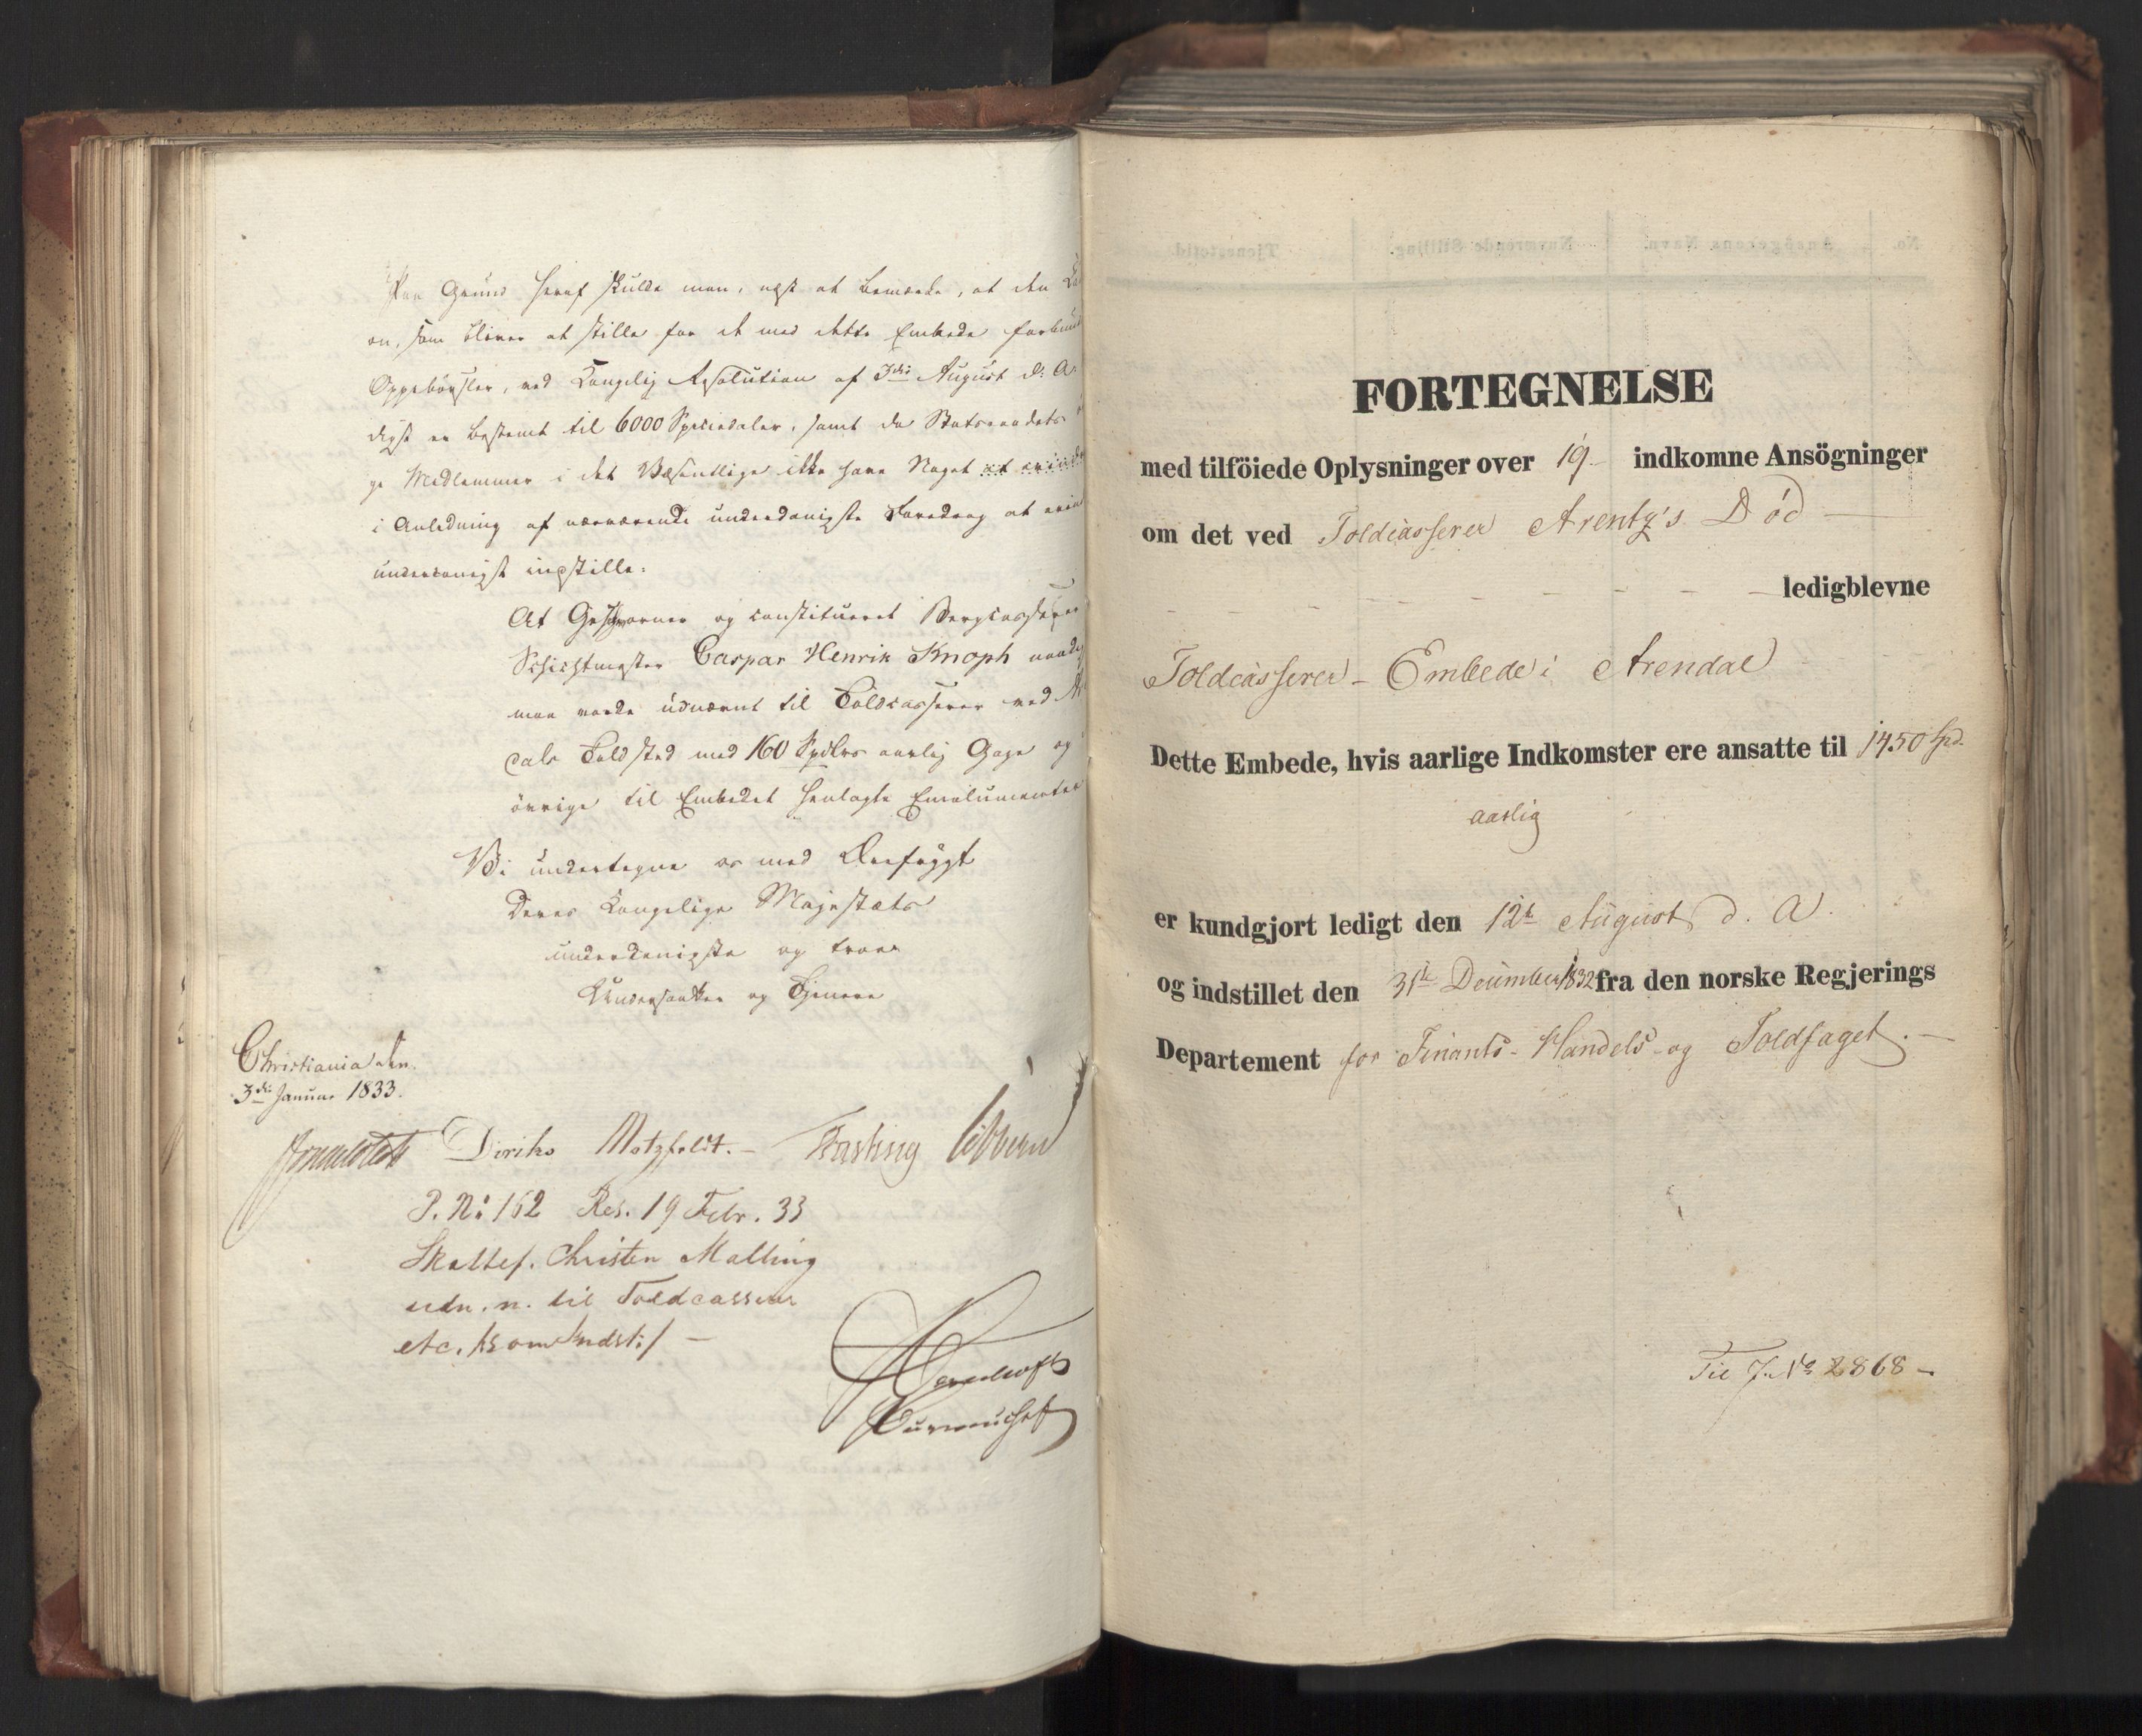 Paa Grund heraf skulde man, næst at bemærke, at den
on, som bliver at stille for de med dette Embede
Oppebørsler, ved Kongelig Resolution af 3die August d: A:
digst er bestemt til 6000 Speciedaler, samt da Statsraadets
ge Medlemmer i det Væsentlige ikke have Noget at
i Anledning af nærværende underdanigste Foredrag at
underdanigst indstille:
At Geschworner og constitueret Bergcasserer
Schichtmester Caspar Henrik Knoph
maa vorde udnævnt til Toldcasserer ved
dals Toldsted med 160 Spdlrs aarlig Gage og
övrige til Embedet henlagte Emolumenter
Vi undertegne os med Ærefrygt
Deres Kongelige Majestæts
underdanigste og troe
Undersaatter og Tjenere
Christiania den
3die Januar 1833.
Diriks Motzfeldt. Fasting Vibbern
P. No: 162 Res. 19 Febr. 33
Christen Malling
udn. n. til Toldcasserer
etc. /: som Indst: /
FORTEGNELSE
med tilföiede Oplysninger over 19 indkomne Ansögninger
om det ved Toldcasserer Arentz's Död
ledigblevne
Toldcasserer-Embede i Arendal
Dette Embede, hvis aarlige Indkomster ere ansatte til 1450 Spd.
aarlig
er kundgjort ledigt den 12te August d. A.
og indstillet den 31te December 1832 fra den norske Regjerings
Departement for Finants- Handels- og Toldfaget.
Til J. No 2868